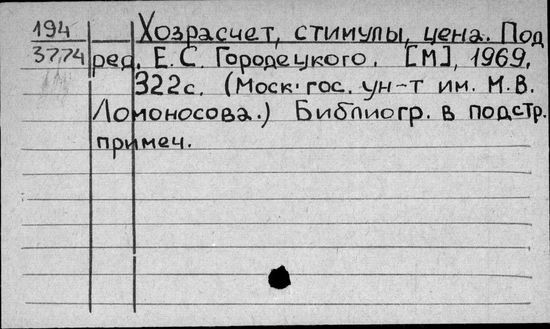 194 Хозрасчет, стимулы, цена. Под
3774 ред. Е.С. Городецкого. [М], 1969.
322с. (Моск. гос. ун-т им. М.В.
Ломоносова.) Библиогр. в подстр.
примеч.